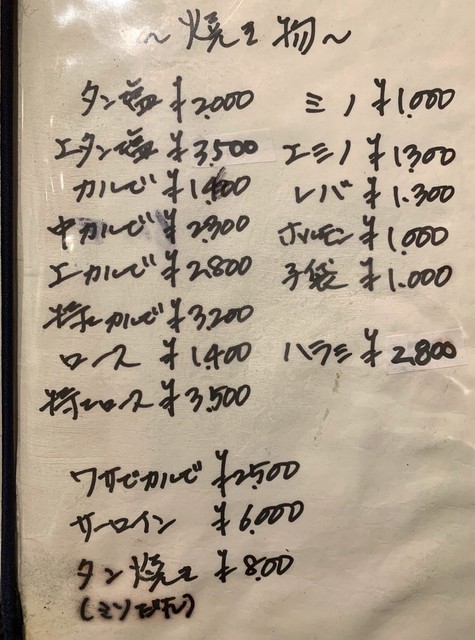 ~焼き物~
タン塩 ¥2,000
上タン塩 ¥3,500
カルビ ¥1,400
中カルビ ¥2,300
上カルビ ¥2,800
特上カルビ ¥3,200
ロース ¥1,400
特上ロース ¥3,500
ミノ ¥1,000
上ミノ ¥1,300
レバ ¥1,300
ホルモン ¥1,000
子袋 ¥1,000
ハラミ ¥2,800
ワサビカルビ ¥2,500
サーロイン ¥6,000
タン焼き ¥800